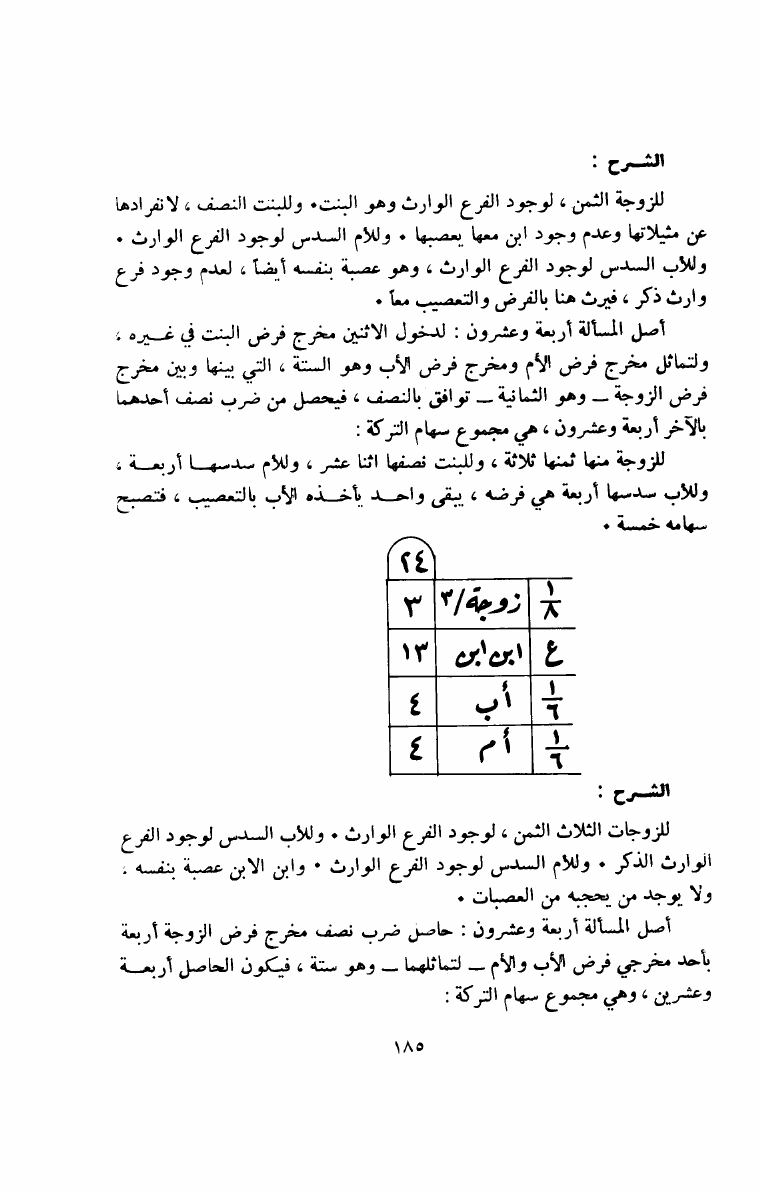 الشـرح :
للزوجة الثمن ، لوجود الفرع الوارث وهو البنت٠ وللبنت النصف ، لانفرادها
عن مثيلاتها وعدم وجود ابن معها يعصبها ٠ وللأم السدس لوجود الفرع الوارث ٠
وللأب السدس لوجود الفرع الوارث ، وهو عصبة بنفسه أيضاً ، لعدم وجود فرع
وارث ذكر ، فيرث هنا بالفرض والتعصيب معاً ٠
أصل المسألة أربعة وعشرون : لدخول الاثنين مخرج فرض البنت في غـيره ،
ولتماثل مخرج فرض الأم ومخرج فرض الأب وهو الستة ، التي بينها وبين مخرج
فرض الزوجة ــ وهو الثمانية ــ توافق بالنصف ، فيحصل من ضرب نصف أحدهما
بالآخر أربعة وعشرون ، هي مجموع سهام التركة :
للزوجة منها ثمنها ثلاثة ، وللبنت نصفها اثنا عشر ، وللأم سدسهـا أربعـة ،
وللأب سدسها أربعة هي فرضه ، يبقى واحـد يأخـذه الأب بالتعصيب ، فتصبح
سهامه خمسة ٠
٢٤
١/٨ زوجة/٣ ٣
ع ابن ابن ١٣
١/٦ أب ٤
١/٦ أم ٤
الشـرح :
للزوجات الثلاث الثمن ، لوجود الفرع الوارث ٠ وللأب السدس لوجود الفرع
الوارث الذكر ٠ وللأم السدس لوجود الفرع الوارث ٠ وابن الابن عصبة بنفسه ،
ولا يوجد من يحجبه من العصبات ٠
أصل المسألة أربعة وعشرون : حاصل ضرب نصف مخرج فرض الزوجة أربعة
بأحد مخرجي فرض الأب والأم ــ لتماثلهما ــ وهو ستة ، فيكون الحاصل أربعـة
وعشرين ، وهي مجموع سهام التركة :
١٨٥